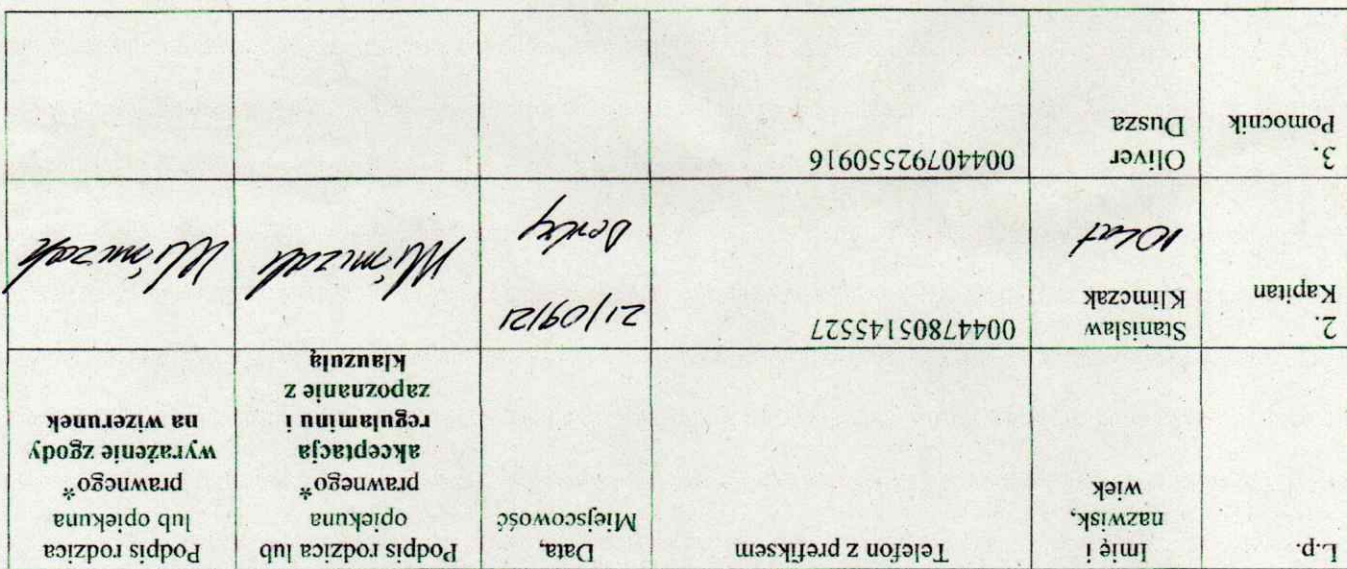 L.p.
Imię i
nazwisk,
wiek
Telefon z prefiksem
Data,
Miejscowość
Podpis rodzica lub
opiekuna
prawnego*
akceptacja
regulaminu i
zapoznanie z
klauzulą
Podpis rodzica
lub opiekuna
prawnego*
wyrażenie zgody
na wizerunek
2.
Kapitan
Stanislaw
Klimczak
10 lat
00447805145527
21/09/21
Derby
Klimczak
Klimczak
3.
Pomocnik
Oliver
Dusza
00440792550916